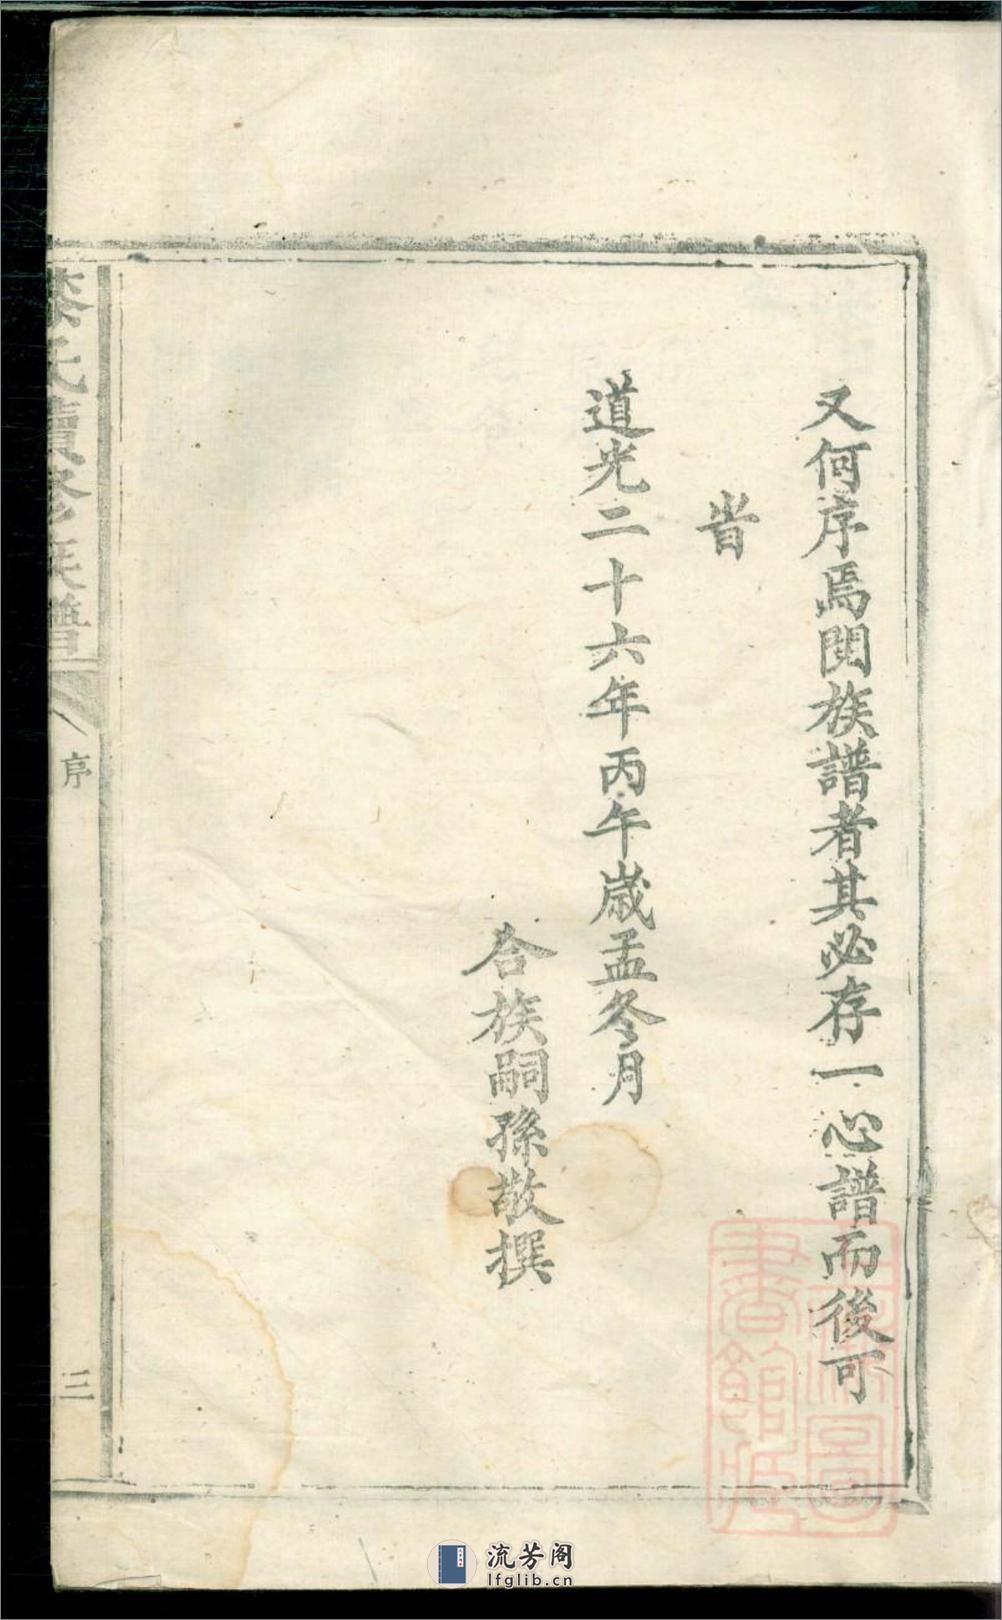 又何序焉閱族譜者其必存一心譜而後可
旹
道光二十六年丙午歲孟冬月
合族嗣孫敬撰
氏續修族譜
序
三
圖
書館
流芳阁
lfglib.cn